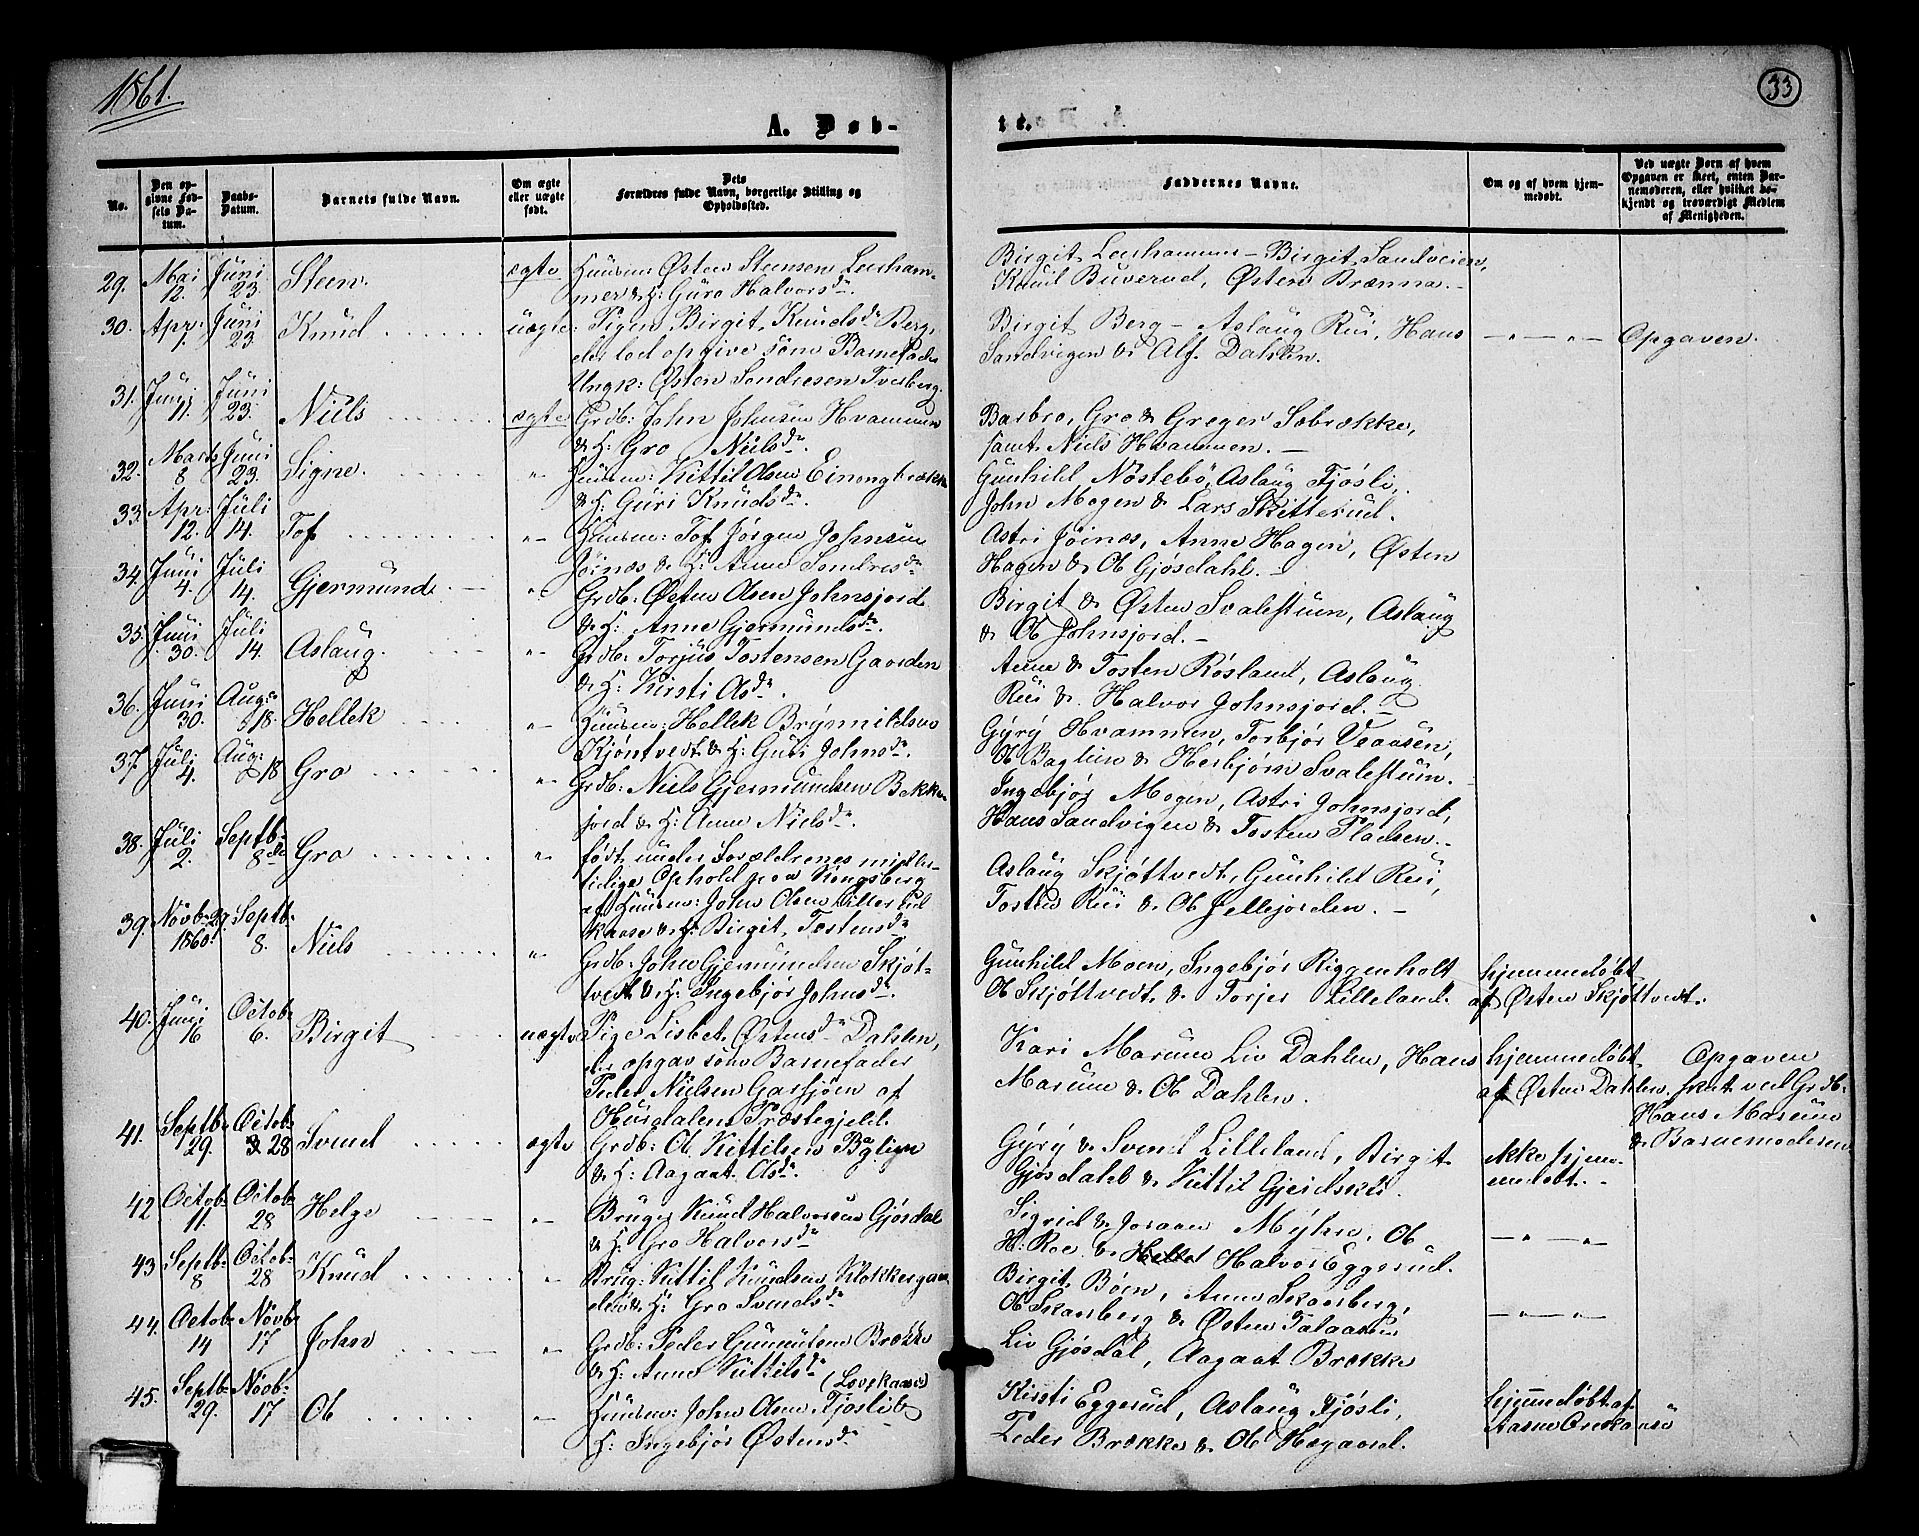 1861.
33
A. Døb-
te.
No.
Den op-
givne Fød-
sels Da-
tum.
Daabs-
Datum.
Barnets fulde Navn.
Om ægte
eller uægte
født.
Dets
Forældres fulde Navn, borgerlige Stilling og
Opholdssted.
Faddernes Navne.
Om og af hvem hjem-
medøbt.
Ved uægte Børn af hvem
Opgaven er skeet, enten Bar-
nemoderen, eller hvilket be-
kjendt og troværdigt Medlem
af Menigheden.
29. Mai 12. Juni 23. Steen. ægte Huusm: Østen Steensen Leirham-
mer & H: Guro Halvorsdr.
Birgit Leirhammer – Birgit Sandveien,
Knud Buverud, Østen Brænna. –
30. Apr: 1. Juni 23. Knud uægte Pigen Birgit Knudsdr Berg,
der lod opgive som Barnefader
Ungk: Østen Sondresen Tveiberg.
Birgit Berg – Aslaug Rui, Hans
Sandvigen & Alf Dahlen.
—„—„— Opgaven.
31. Juni 11. Juni 23. Niels ægte Grdb: John Johnsen Hvammen
& H: Gro Nielsdr.
Barbro, Gro & Greger Sobrække,
samt Niels Hvammen. –
32. Marts 8 Juni 23. Signe. „ Huusm: Kittil Olsen Einongbrække
& H: Guri Knudsdr.
Gunhild Nöstebö, Aslaug Fjösli,
John Mogen & Lars Skitterud.
33. Apr: 12. Juli 14. Tof „ Huusm: Tof Jörgen Johnsen
Jöinos & H: Anne Sondresdr
Astri Jöinos, Anne Hagen, Østen
Hagen & Ob Gjösdahl. –
34. Juni 4. Juli 14. Gjermund. „ Grdb: Østen Olsen Johnsjord
& H: Anne Gjermundsdr.
Birgit & Østen Svalestuen, Aslaug
& Ob Johnsjord. –
35. Juni 30. Juli 14. Aslaug. „ Grdb: Torjus Tostensen Gaarden
& H: Kirsti Asdr.
Anne & Tosten Rösland, Aslaug
Rui & Halvor Johnsjord. –
36. Juni 30. Aug: 18. Hellek „ Huusm: Hellek Brynnildsen
Kjöntvedt & H: Guri Johnsdr.
Gyry Hvammen, Torbjør Vraasen,
Ob Baglien & Herbjörn Svalestuen.
37. Juli 4. Aug: 18 Gro „ Grdb: Niels Gjermundsen Bekke-
jord & H: Anne Nielsdr.
Ingebjör Mogen, Astri Johnsjord,
Hans Sandvigen & Tosten Pladsen. –
38. Juli 2. Septb: 8de Gro „ født under Forældrenes midler-
tidige Ophold paa Kongsberg
af Huusm: John Olsen Lillerud
& H: Birgit Tostensdr
Aslaug Skjöttvedt, Gunhild Rui,
Tosten Rui & Ob Jellejorden. –
39. Novb: 29. 1860. Septb: 8. Niels „ Grdb: John Gjermundsen Skjöt-
tvedt & H: Ingebjör Johnsdr.
Gunhild Moen, Ingebjör Riggenholt
Ob Skjöttvedt & Torjer Lilleland.
hjemmedöbt
af Østen Skjöttvedt.
40. Juni 16 Octob: 6. Birgit uægte Pige Lisbet Østensdr Dahlen,
der opgav som Barnefader
Peder Nielsen Gassjöen af
Præstegjeld.
Kari Moruum Liv Dahlen, Hans
Moruum & Ob Dahlen.
hjemmedöbt
af Østen Dahlen.
Opgaven
skeet ved Grdb:
Hans Moruum
& Barnemoderen
41. Septb: 29. Octob: 28 Svend ægte Grdb: Ob Kittilsen Baglien
& H: Aagaat Asdr.
Gyry & Svend Lilleland, Birgit
Gjösdahl & Kittil Gjeidskli.
ikke hjem-
medöbt. –
42 Octob: 11. Octob: 28 Helge „ Bruger Knud Halvorsen Gjösdal
& H: Gro Halvorsdr
Sigrid & Joraan Myhre, Ob
H: Roe & Halvor Eggerud.
—„—„—
43 Septb: 8 Octob: 28 Knud „ Brug: Kittil Knudsen Klokkergaar-
den & H: Gro Svendsdr
Birgit Böen, Anne Skarsberg,
Ob Skarsberg & Østen Talaasen
—„—„—
44. Octob: 14 Novb: 17 John „ Grdb: Peder Gunnulsen Brække
& H: Anne Kittilsdr
Liv Gjösdal, Aagaat Brække
45. Septb: 29. Novb: 17 Ob „ Huusm: John Olsen Fjösli &
H: Ingebjör Østensdr
Kirsti Eggerud, Aslaug Fjösli,
Peder Brække & Ob Hægaard.
hjemmedöbt af